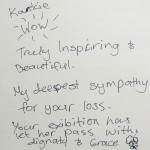 Kaukie
Wow
Truly Inspiring &
Beautiful.
My deepest sympathy
for your loss.
Your exibition has
let her pass with
dignaty & Grace